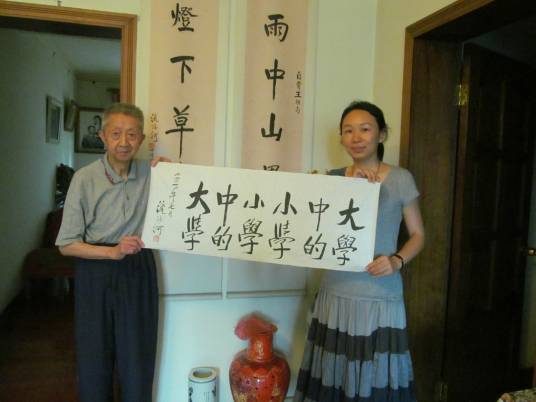 雨中山
燈下草
大學
中的
小學
小學
中的
大學
流沙河